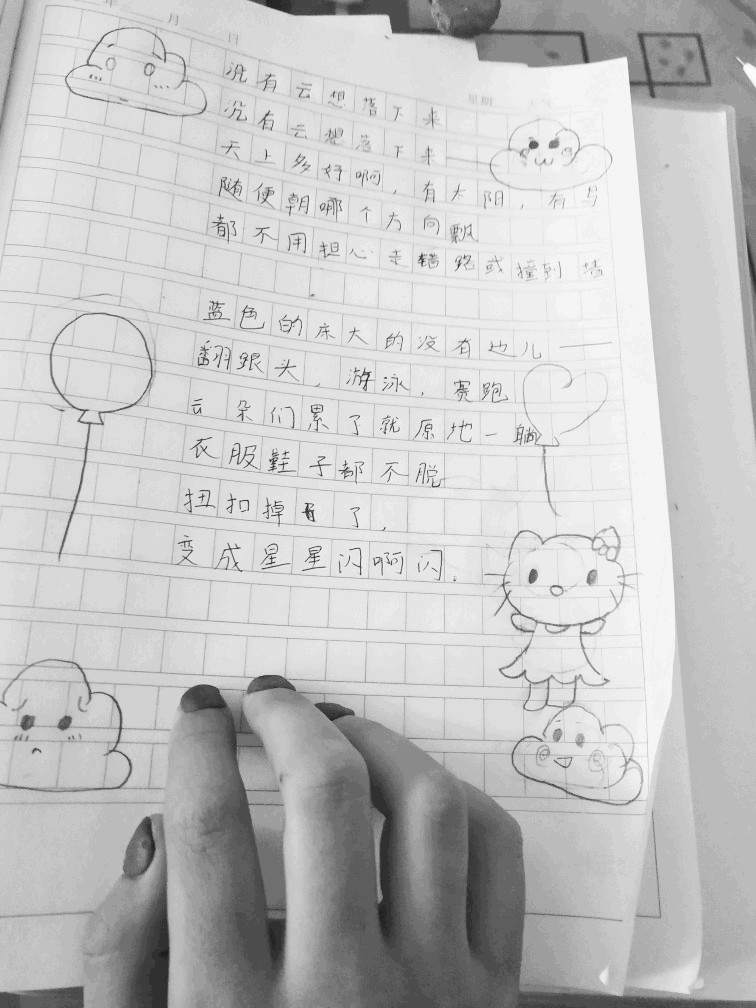 年 月 日
星期
没有云想落下来
没有云想落下来——
天上多好啊，有太阳，有鸟
随便朝哪个方向飘
都不用担心走错跑或撞到墙
蓝色的床大的没有边儿——
翻跟头，游泳，赛跑
云朵们累了就原地一躺
衣服鞋子都不脱
扭扣掉了，
变成星星闪啊闪.